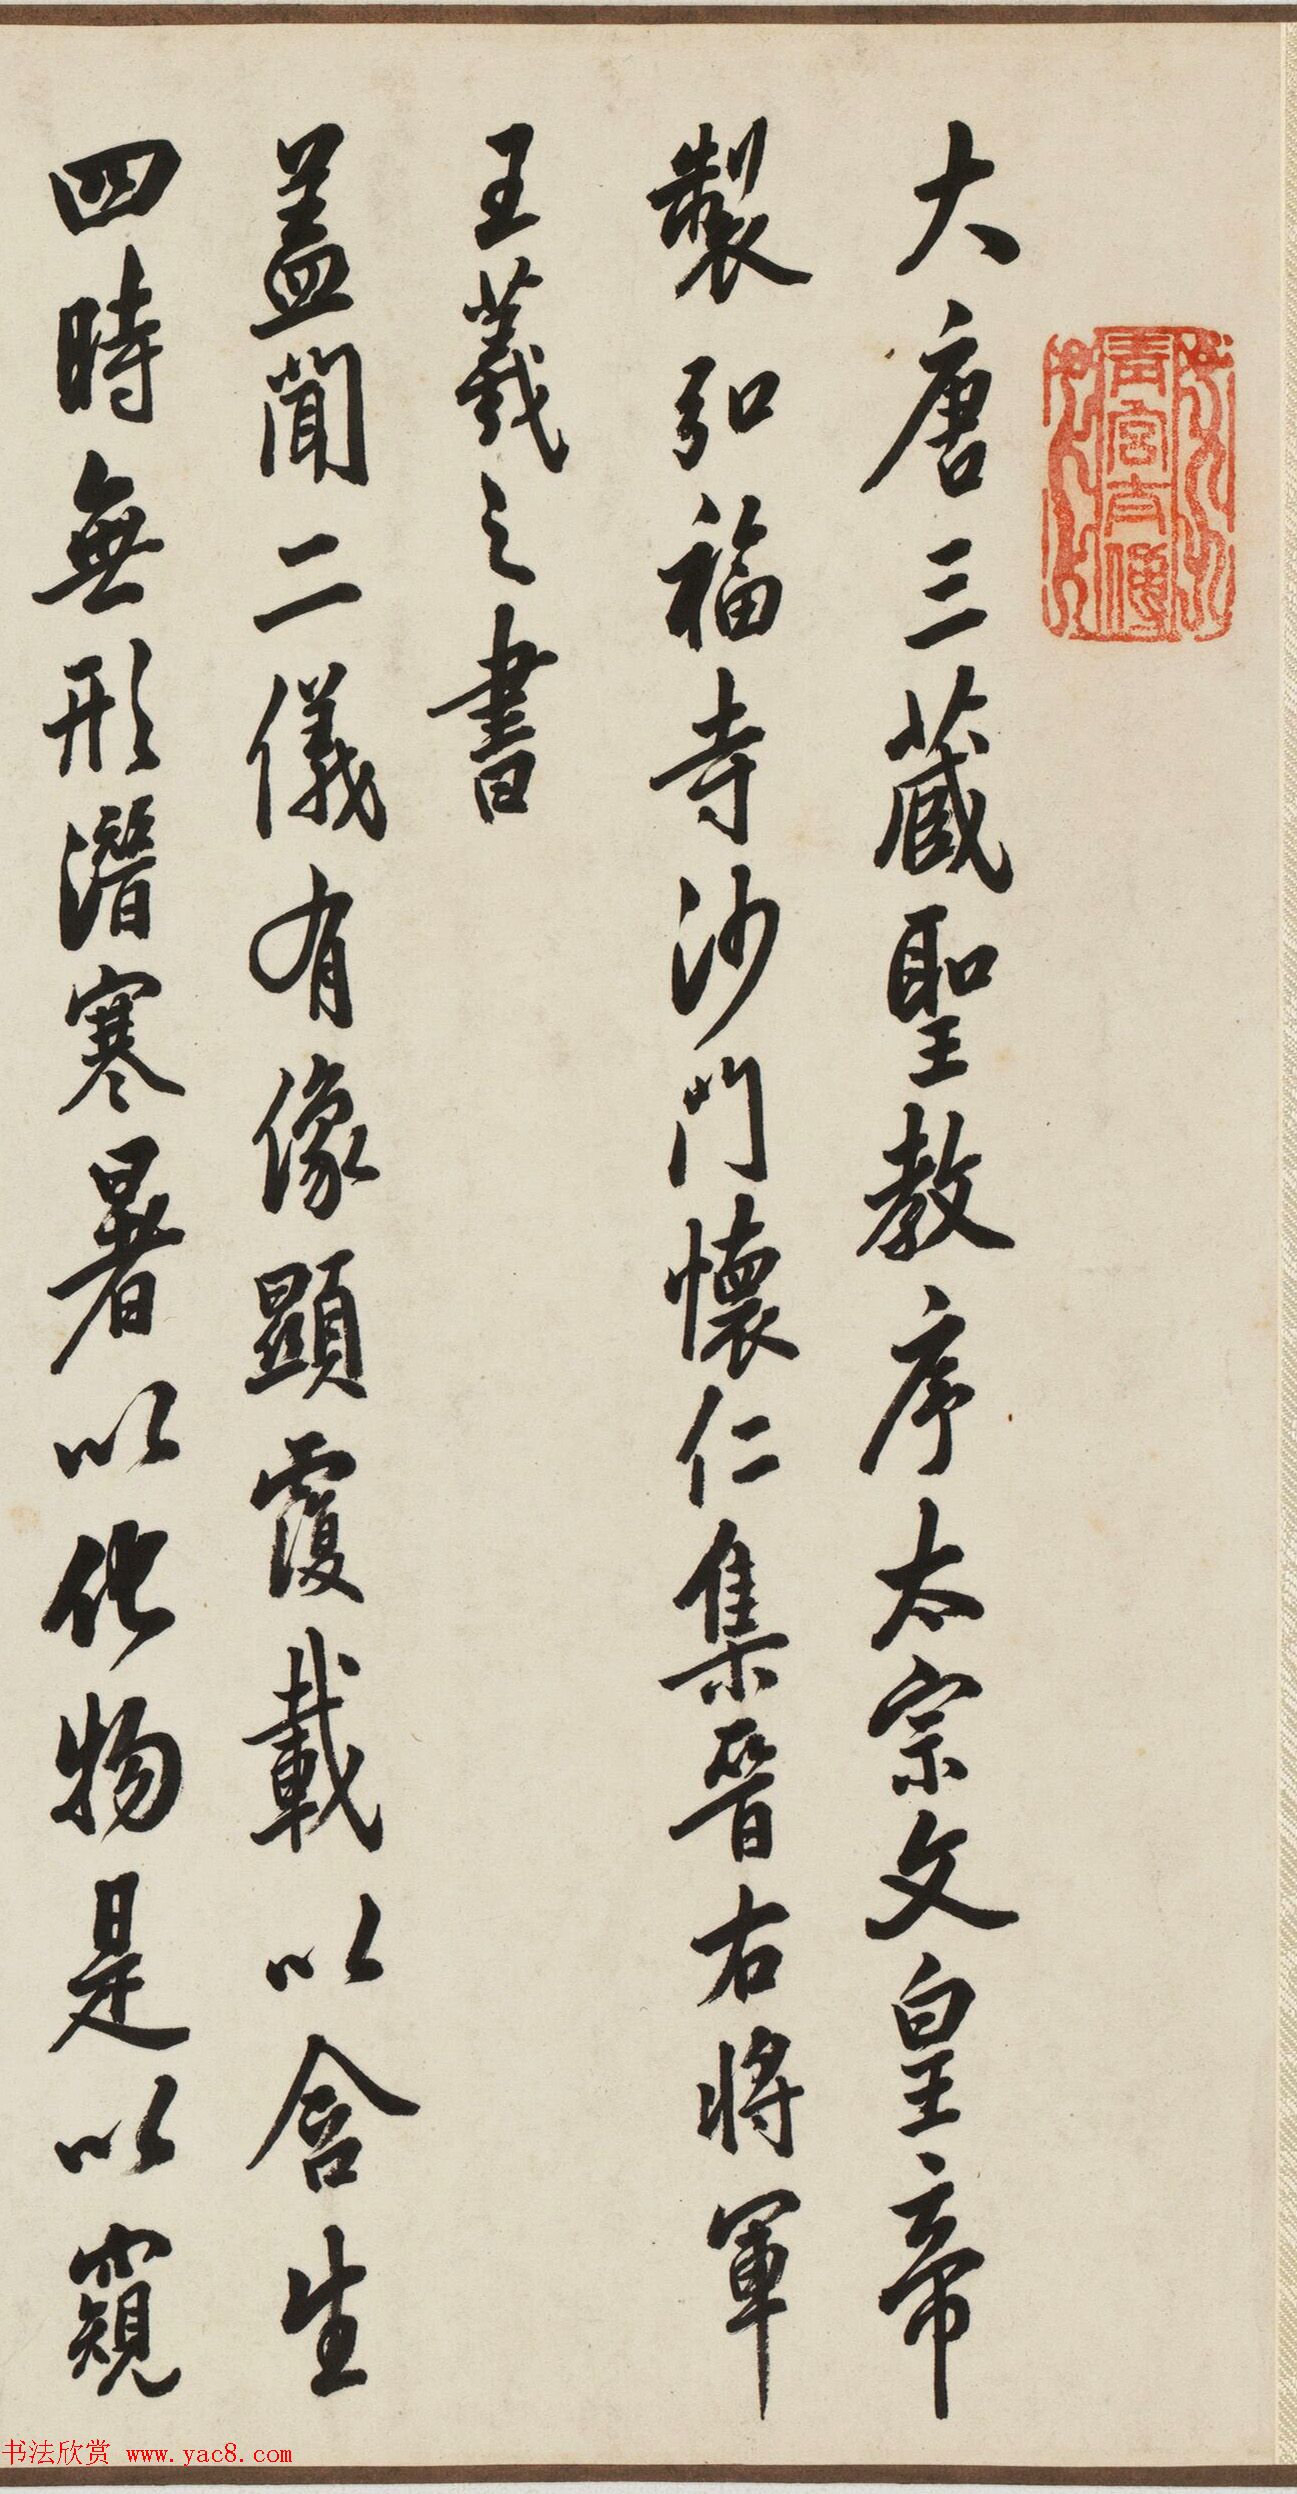 大唐三藏聖教序太宗文皇帝
製弘福寺沙門懷仁集晉右將軍
王羲之書
蓋聞二儀有像顯覆載以含生
四時無形潛寒暑以化物是以窺
青宮太傅
书法欣赏 www.yac8.com